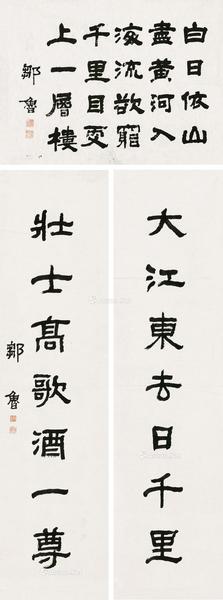 白日依山
盡黃河入
海流欲窮
千里目更
上一層樓
鄒魯
大江東去日千里
壯士髙歌酒一尊
鄒魯